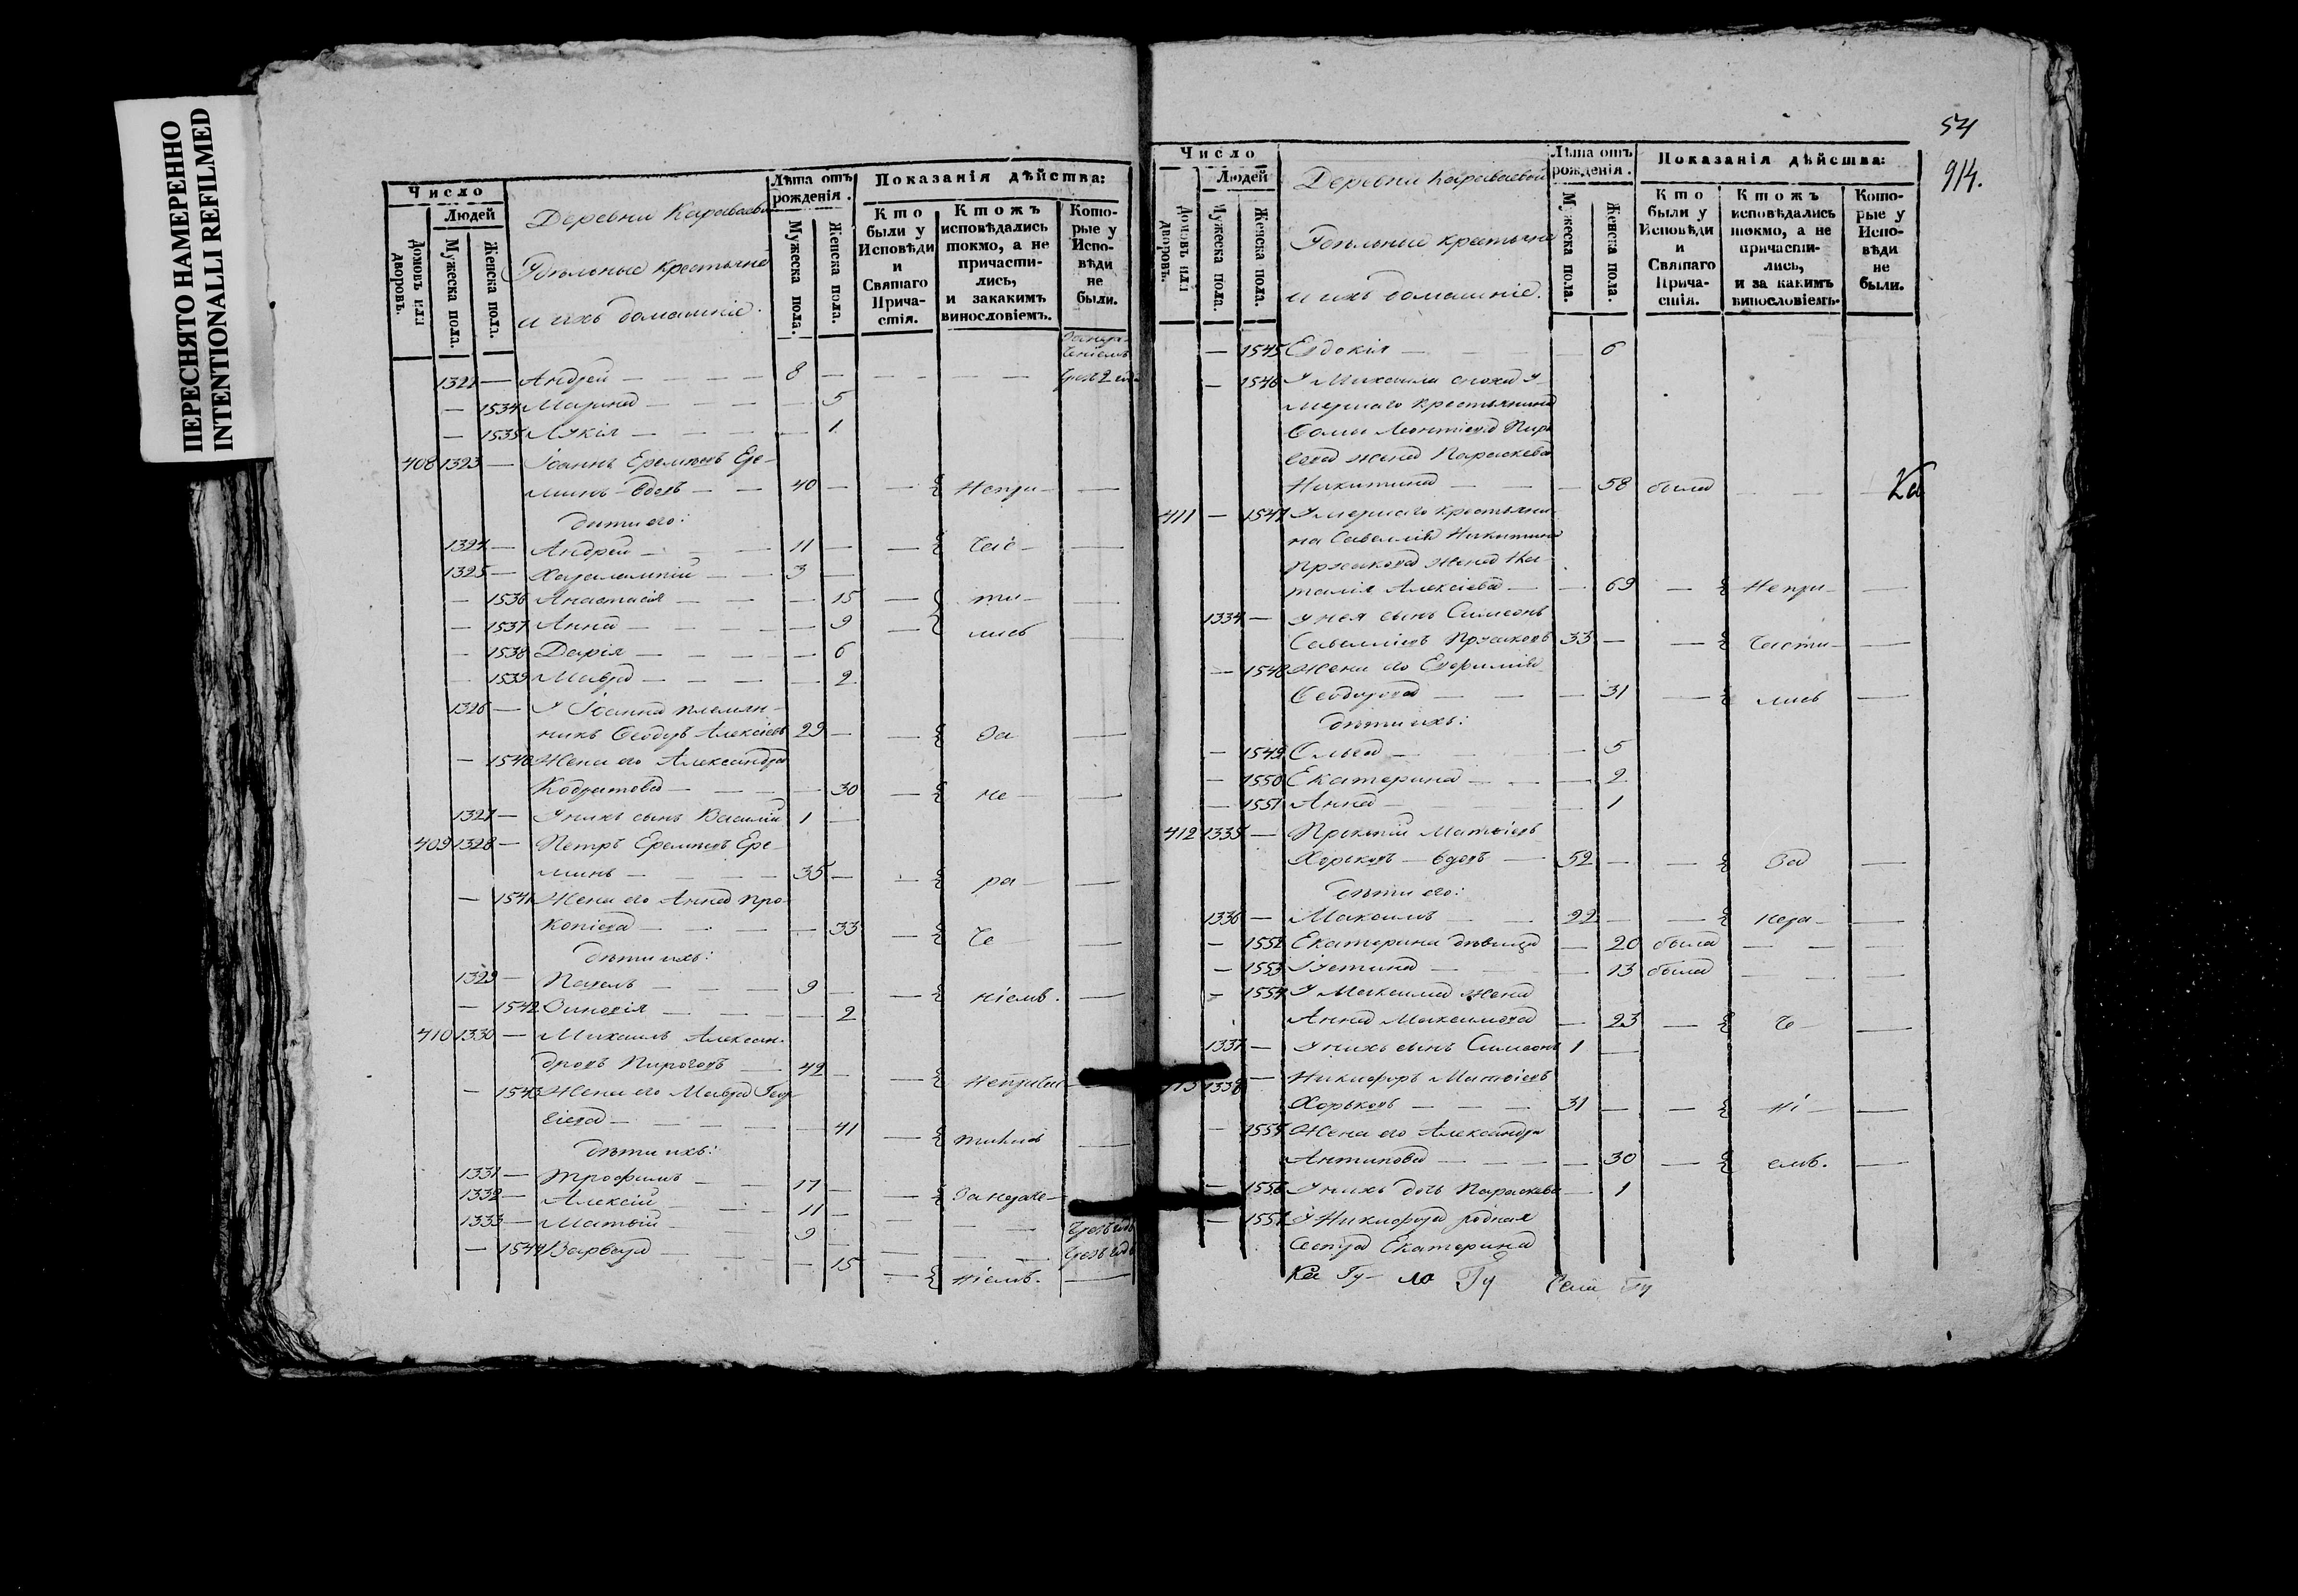 ПЕРЕСНЯТО НАМЕРЕННО
INTENTIONALLI REFILMED
Число
Людей
Домовъ или дворовъ.
Мужеска пола.
Женска пола.
Деревни Караваевой
Удѣльные крестьяне
и ихъ домашніе.
Лѣта отъ рожденія.
Мужеска пола.
Женска пола.
Показанія дѣйства:
Кто были у Исповѣди и Святаго Причастія.
Ктожъ исповѣдались токмо, а не причастились, и закакимъ винословіемъ.
Которые у Исповѣди не были.
1322 — Андрей — 8 —
— 1534 Марина — 5
— 1535 Лукія — 1
408 1323 — Іоаннъ Еремѣевъ Ере-
минъ вдовъ — 40 — Непри-
дѣти его:
1324 — Андрей — 11 — час-
1325 — Харалампій — 3 —
— 1536 Анастасія — 15 ти-
— 1537 Анна — 9 лись
— 1538 Дарія — 6
— 1539 Мавра — 2
1326 — У Іоанна племян-
никъ Ѳеодоръ Алексіевъ 29 — За
— 1540 Жена его Александра
Кодратова — 30 не
1327 — У нихъ сынъ Василій 1 —
409 1328 — Петръ Еремѣевъ Ере-
минъ — 35 — ра
— 1541 Жена его Анна Про-
копіева — 33 че
дѣти ихъ:
1329 — Павелъ — 9 — ніемъ.
— 1542 Зиновія — 2
410 1330 — Михаилъ Алексан-
дровъ Пироговъ — 42 — Непричас
— 1543 Жена его Мавра Геор-
гіева — 41
дѣти ихъ:
1331 — Трофимъ — 17 — За нераче-
1332 — Алексій — 11 —
1333 — Матѳій — 9 —
— 1544 Варвара — 15 ніемъ.
54
914.
Число
Людей
Домовъ или дворовъ.
Мужеска пола.
Женска пола.
Деревни Караваевой
Удѣльные крестьяне
и ихъ домашніе.
Лѣта отъ рожденія.
Мужеска пола.
Женска пола.
Показанія дѣйства:
Кто были у Исповѣди и Святаго Причастія.
Ктожъ исповѣдались токмо, а не причастились, и за какимъ винословіемъ.
Которые у Исповѣди не были.
— 1545 Евдокія — 6
— 1546 У Михаила сноха у-
мершаго крестьянина
Саввы Леонтіева Пиро
гова жена Параскева
Никитина — 58 была
411 — 1547 Умершаго крестьяни-
на Савеллія Никитина
жена На-
талія Алексіева — 69 Непри-
1334 — У нея сынъ Симеонъ
Савелліевъ 33 — части-
— 1548 Жена его Евфимія
Ѳеодорова — 31 лись
дѣти ихъ:
— 1549 Ольга — 5
— 1550 Екатерина — 2
— 1551 Анна — 1
412 1335 — Прокопій Матѳіевъ
Хорьковъ — вдовъ — 52 — За
дѣти его:
1336 — Максимъ — 22 — нера-
— 1552 Екатерина дѣвица — 20 была
— 1553 Іустина — 13 была
— 1554 У Максима жена
Анна Максимова — 23 че-
1337 — У нихъ сынъ Симеонъ 1 —
413 1338 — Никифоръ Матѳіевъ
Хорьковъ — 31 — ні-
— 1555 Жена его Александра
Антипова — 30 емъ.
— 1556 У нихъ дочь Параскева — 1
— 1557 У Никифора родная
сестра Екатерина